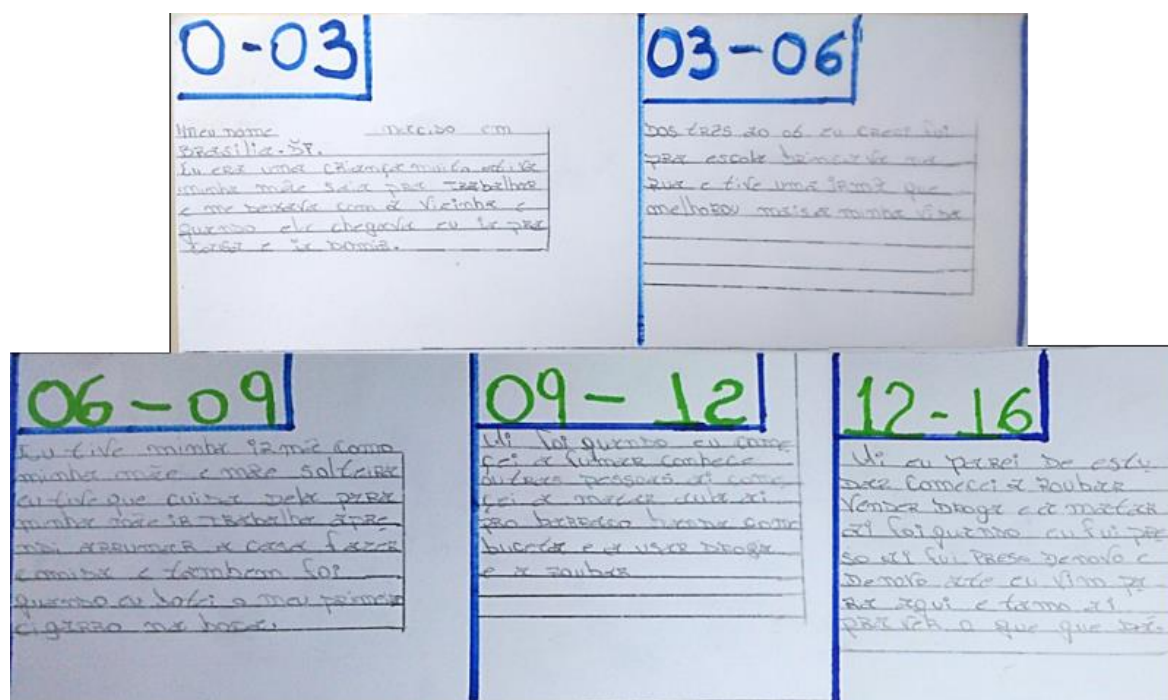 0-03
Meu nome nascido em
Brasilia-DF.
Eu era uma criança muito ativa
minha mãe saia pra trabalhar
e me deixava com a vizinha e
quando ela chegava eu ia pra
casa e ia dormir.
03-06
Dos três ao 06 eu cresci fui
pra escola brincava na
rua e tive uma irmã que
melhorou mais a minha vida
06-09
Eu tive minha irmã como
minha mãe e mãe solteira
eu tive que cuidar dela para
minha mãe ir trabalha apre
ndi arrumar a casa fazer
comida e também foi
quando eu botei o meu primeiro
cigarro na boca.
09-12
Ai foi quando eu come
çei a fumar conhece
outras pessoas ai come
çei a matar aula ai
pro barraco
e a usar droga
e a roubar
12-16
Ai eu parei de estu
dar comecei a roubar
vender droga e a matar
ai foi quando eu fui pre
so ai fui preso denovo e
denovo ate eu vim pa
ra aqui e tamo ai
pra veh o que que dá.